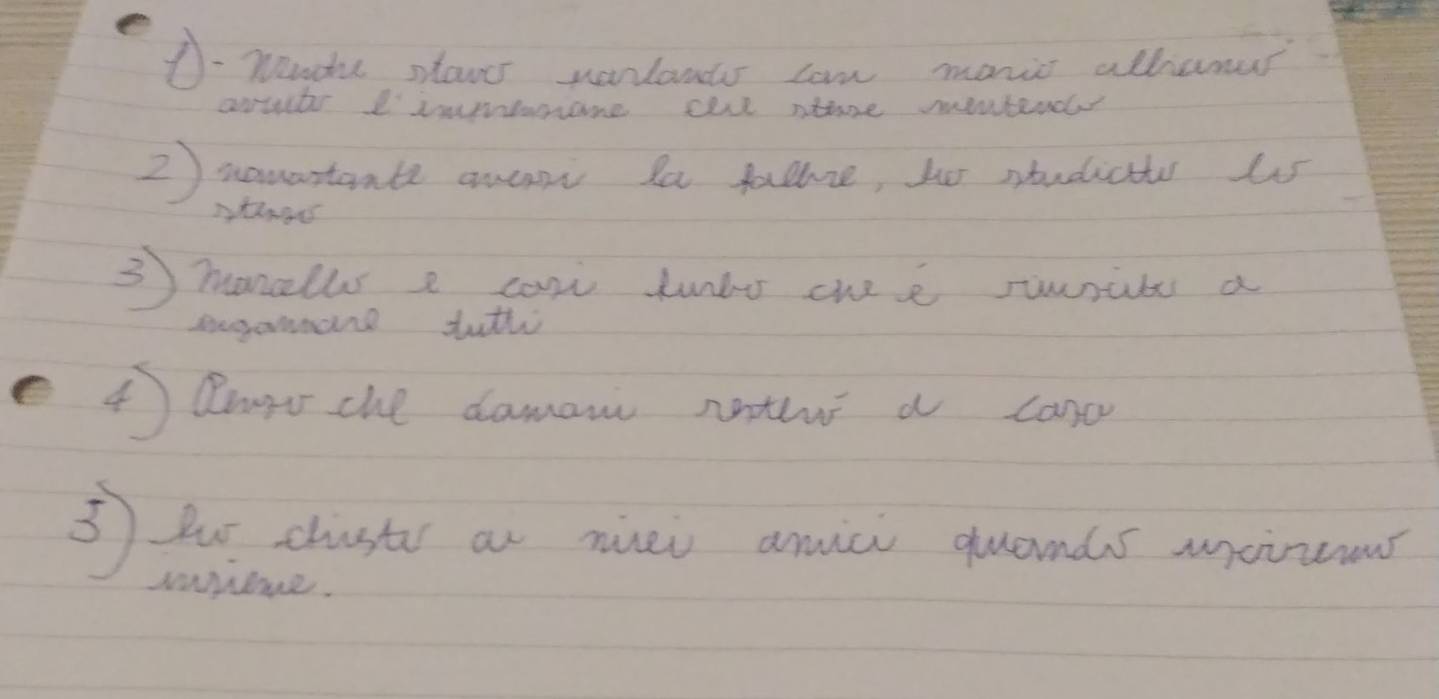 1)- Mentre stavo parlando con mario abbiamo
avuto l'impressione che stesse mentendo
2) nonostante avessi la febbre, ho studiato lo
stesso
3) Marcello e cosi furbo che è riuscito a
ingannare tutti
4) Penso che domani resterò a casa
5) ho chiesto ai miei amici quando usciremo
insieme.